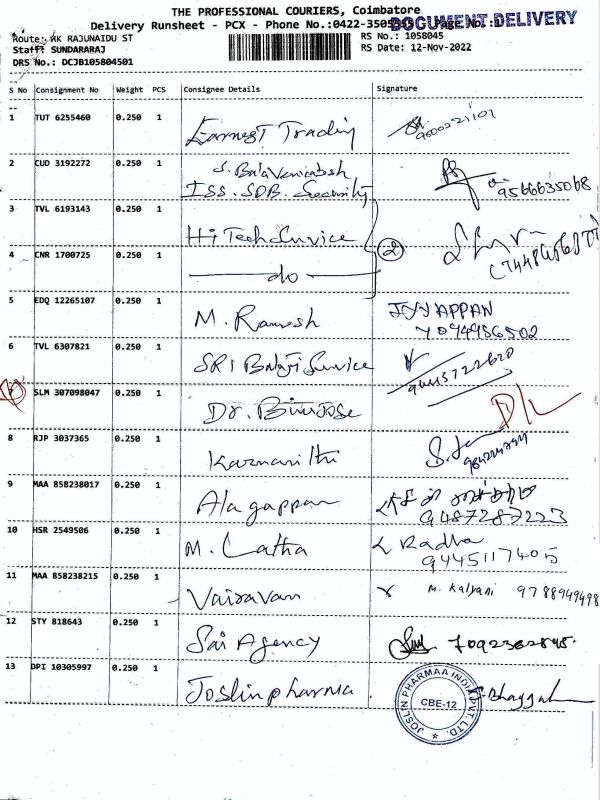 THE PROFESSIONAL COURIERS, Coimbatore
Delivery Runsheet - PCX - Phone No.:0422-3505
DOCUMENT DELIVERY
Route: KK RAJUNAIDU ST
Staff: SUNDARARAJ
DRS No.: DCJB105804501
RS No.: 1058045
RS Date: 12-Nov-2022
S No Consignment No Weight PCS Consignee Details Signature
1 TUT 6255460 0.250 1 Earnest Trading
2 CUD 3192272 0.250 1 S. Balavenkatesh
ISS. SDB. Security 9566635068
3 TVL 6193143 0.250 1 HiTech Service
4 CNR 1700725 0.250 1 do 2
5 EDQ 12265107 0.250 1 M. Ramesh IYYAPPAN
7094986502
6 TVL 6307821 0.250 1 SRI Balaji Service
7 SLM 307098047 0.250 1 Dr. Binujose D/L
8 RJP 3037365 0.250 1
9 MAA 858238017 0.250 1 Alagappan
9487287223
10 HSR 2549506 0.250 1 M. Latha Radha
9445117405
11 MAA 858238215 0.250 1 Vairavan M. Kalyani 9788949498
12 STY 818643 0.250 1 Sai Agency
13 DPI 10305997 0.250 1 Joslinpharma
JOSLIN PHARMAA INDIA PVT. LTD.
CBE-12